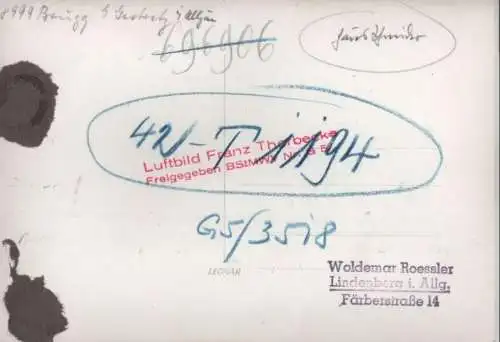 8999 Brugg b Gestratz i/Allgäu
696906
42/-T 1194
Luftbild Franz Thorbecke
Freigegeben BStMWV Nr. G 5
G5/3518
LEONAR
Woldemar Roessler
Lindenberg i. Allg.
Färberstraße 14